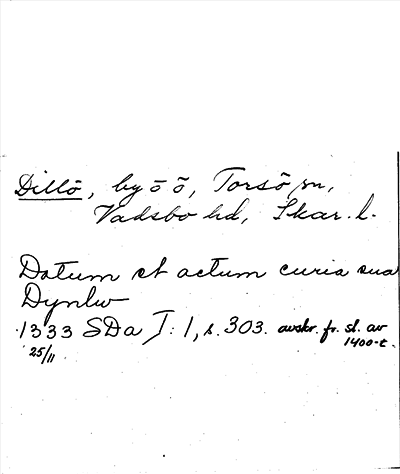 Dillö, by o ö, Torsö sn,
Vadsbo hd, Skar. l.
Datum et actum curia sua
Dynlw
1333 SDa I: 1, s. 303. avskr. fr. sl. av
25/11 1400-t.